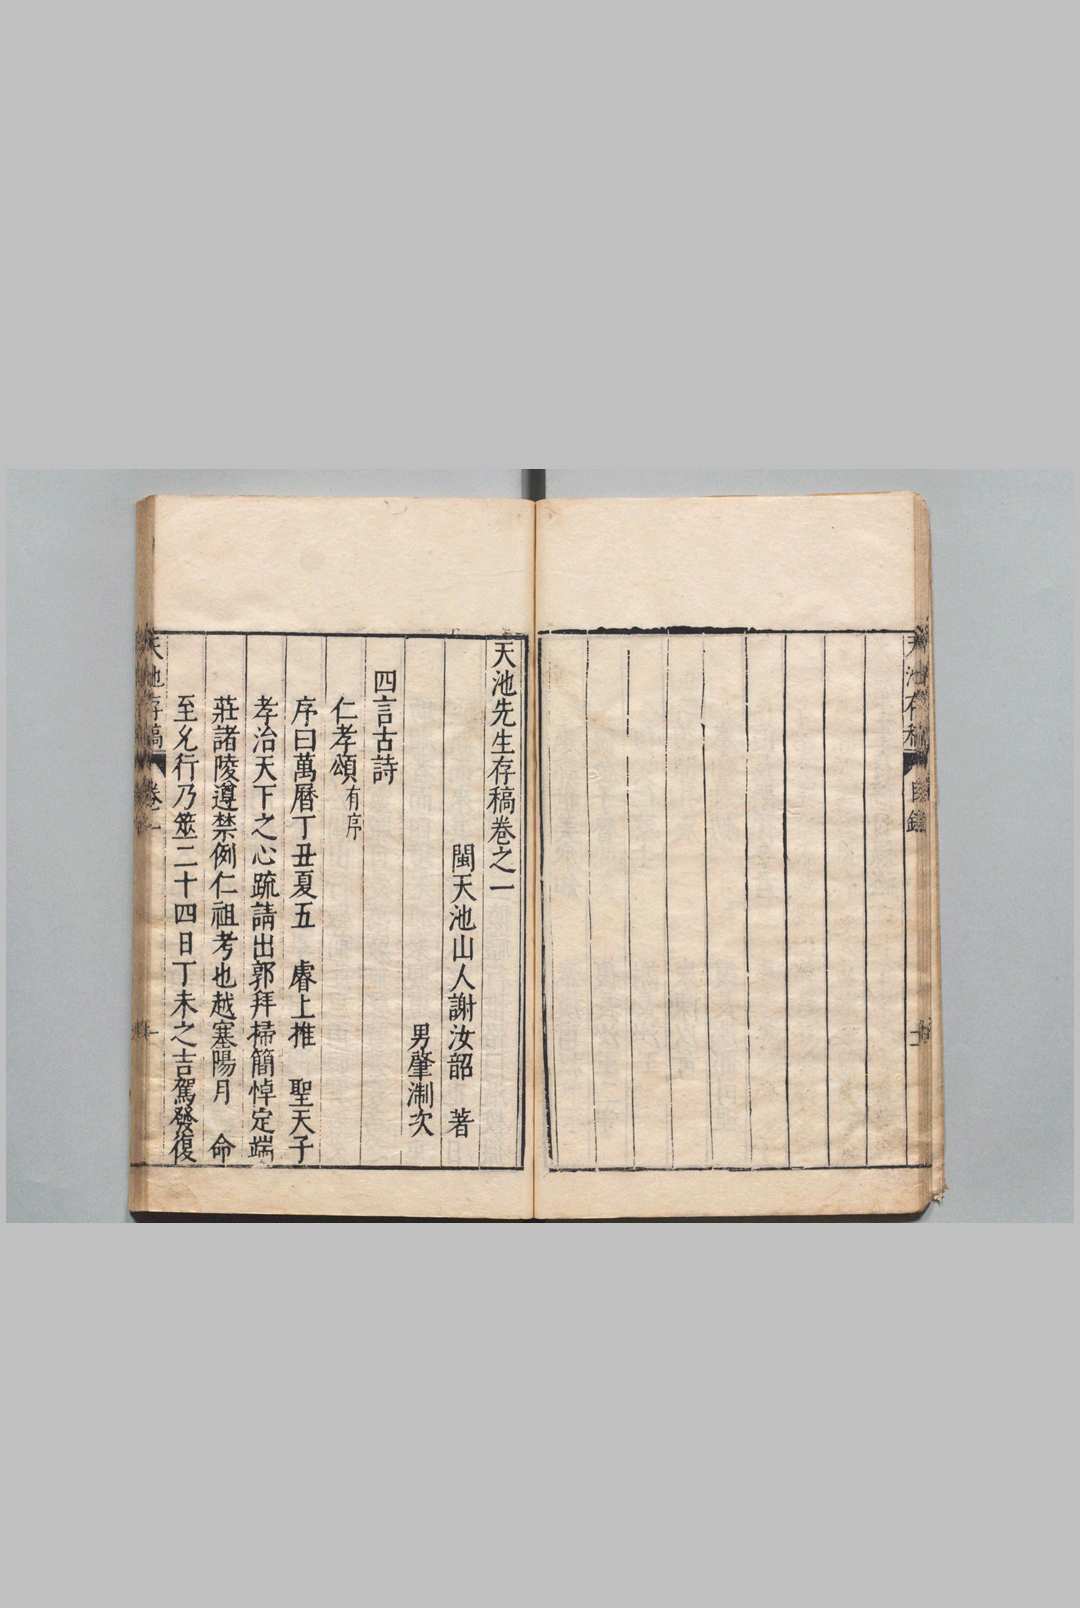 天池存稿 目錄
天池先生存稿卷之一
閩天池山人謝汝韶 著
男肇淛次
四言古詩
仁孝頌有序
序曰萬曆丁丑夏五 睿上推 聖天子
孝治天下之心疏請出郭拜掃簡悼定端
莊諸陵遵禁例仁祖考也越塞陽月 命
至允行乃筮二十四日丁未之吉駕發復
天池存稿 卷之一 一